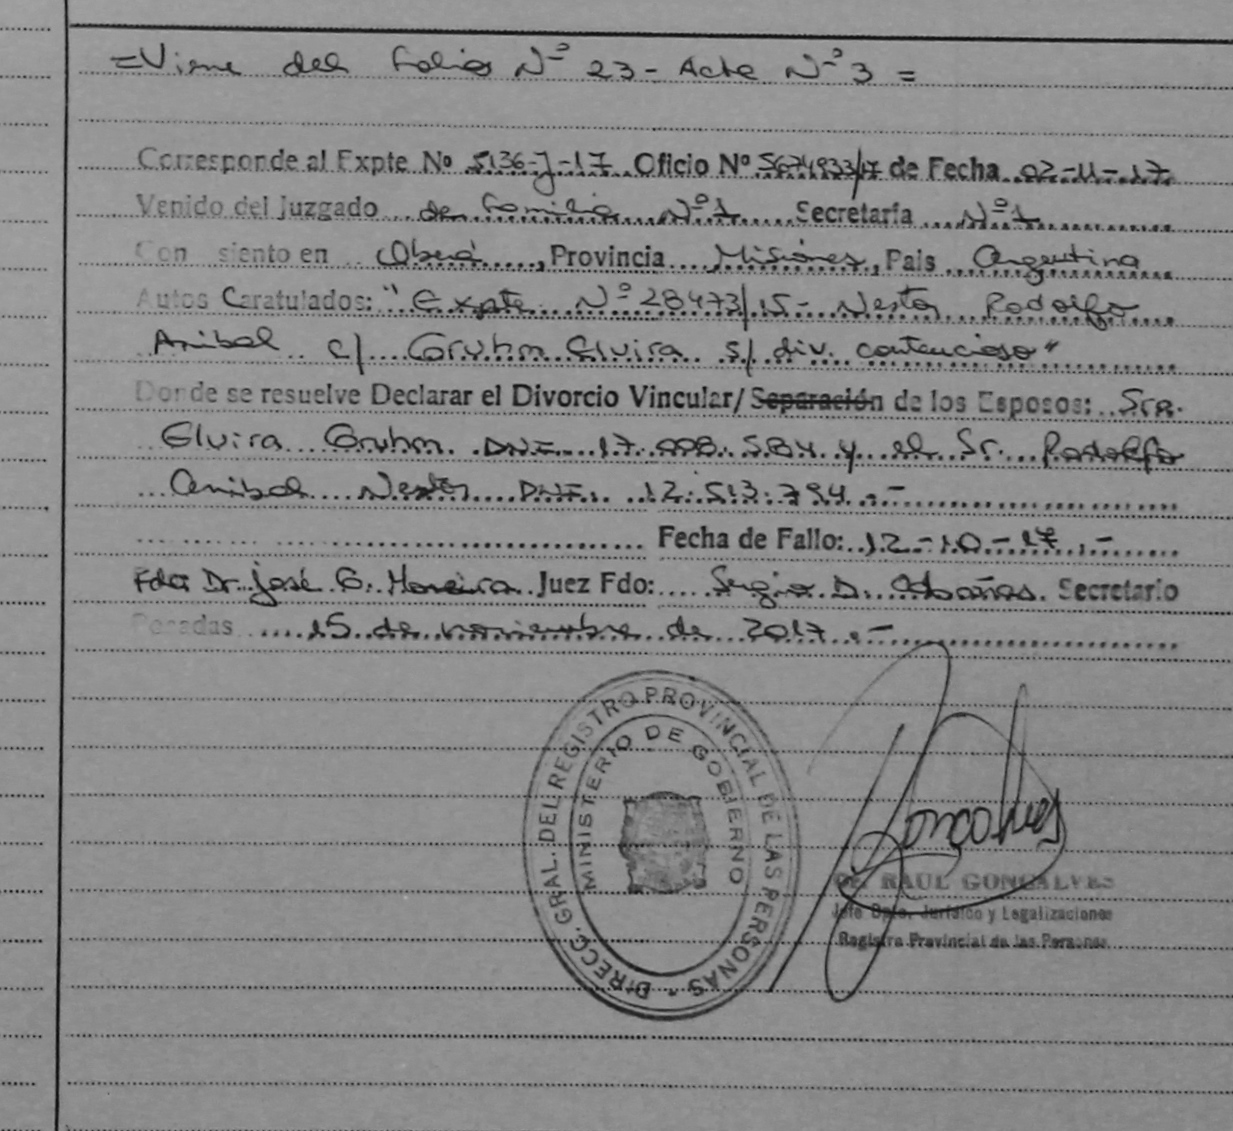 =Viene del Folios Nº 23 - Acta Nº 3 =
Corresponde al Expte Nº 5136-J-17 Oficio Nº 5674933/17 de Fecha 02-11-17
Venido del Juzgado de Familia Nº 1 Secretaría Nº 1
Con siento en Oberá, Provincia Misiones, Pais Argentina
Autos Caratulados: "Expte Nº 28473/15 - Nestor Rodolfo
Anibal c/ Gruhm Elvira s/ div. contencioso"
Donde se resuelve Declarar el Divorcio Vincular/ Separación de los Esposos: Sra.
Elvira Gruhm DNI 17. 584 y el Sr. Rodolfo
Anibal Nestor DNI. 12.513.794.-
Fecha de Fallo: 12-10-17.-
Fdo: Dr. José G. Moreira Juez Fdo: Sergio D. Secretario
Posadas 15 de noviembre de 2017.-
DIRECC. GRAL. DEL REGISTRO PROVINCIAL DE LAS PERSONAS
MINISTERIO DE GOBIERNO
Goncalves
Dr. RAUL GONCALVES
Jefe Dpto. Jurídico y Legalizaciones
Registro Provincial de las Personas